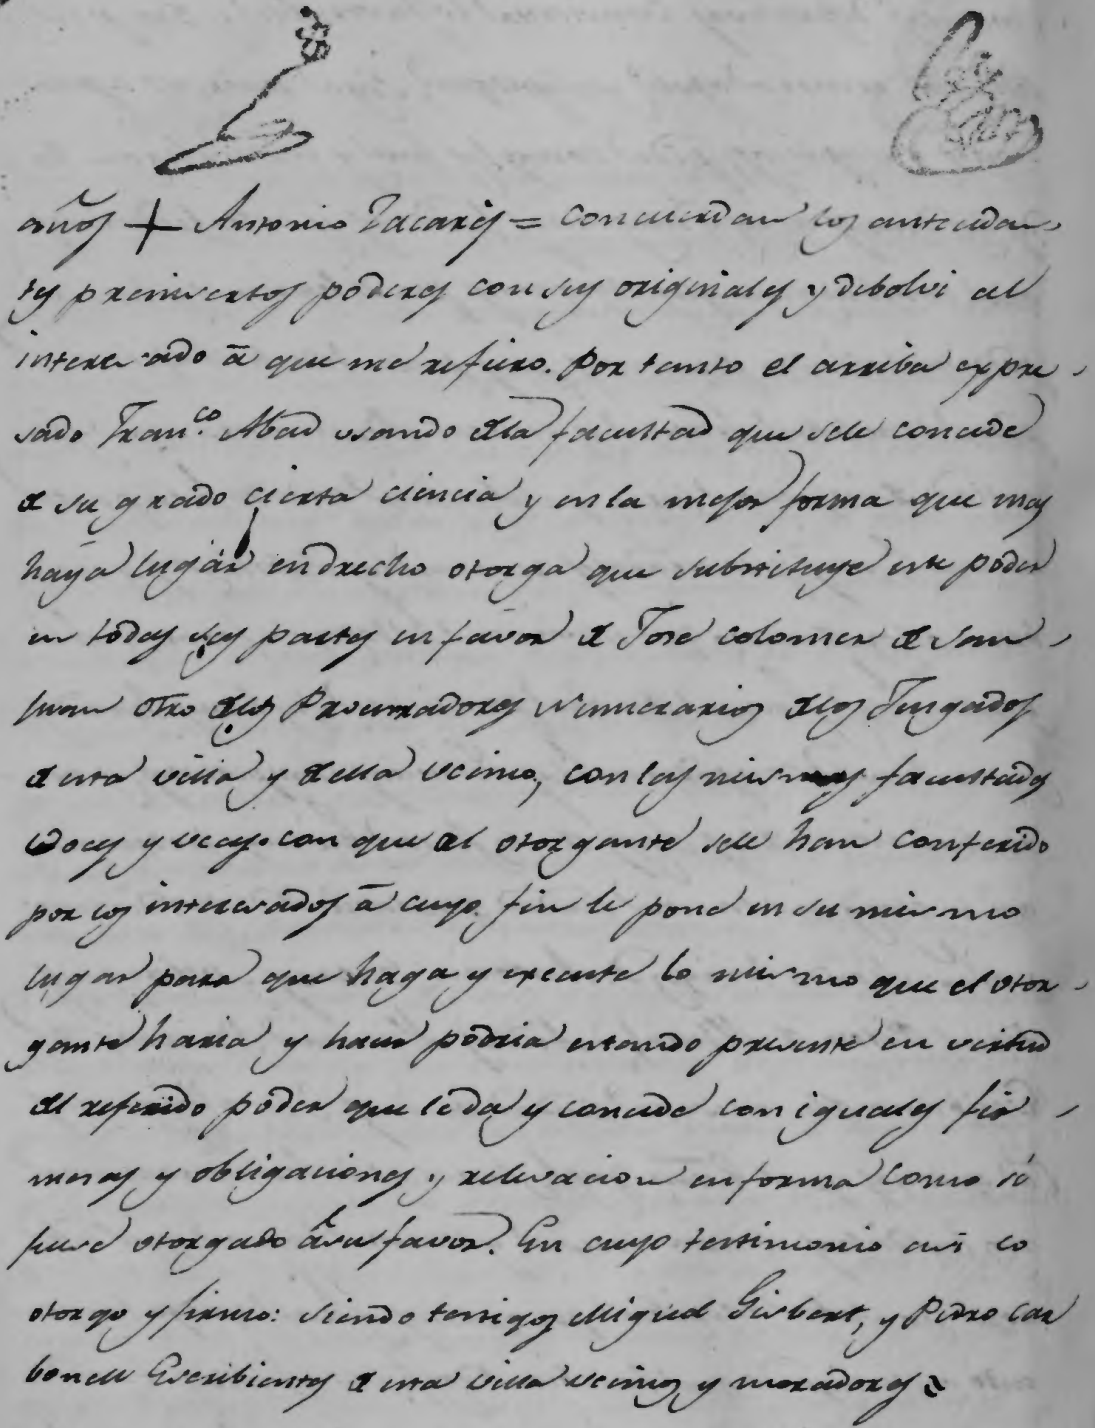 años + Antonio Pacaris = Concuerdan los anteceden-
tes preinsertos poderes con sus originales y debolvi al
interesado à que me refiero. Por tanto el arriba expre-
sado Fran.co Abad usando dela facultad que sele concede
de su grado cierta ciencia y en la mejor forma que mas
haya lugar en drecho otorga que substituye este poder
en todas sus partes en favor de Jose Colomer de San
Juan otro delos Procuradores Numerarios delos Jusgados
de esta villa y della vecino, con las mismas facultades
voces y veces con que al otorgante sele han conferido
por los interesados à cuyo fin le pone en su mismo
lugar para que haga y execute lo mismo que el otor-
gante haria y hacer podria estando presente en virtud
del referido poder que le da y concede con iguales fir-
mesas y obligaciones y relevacion en forma como si
fuese otorgado à su favor. En cuyo testimonio asi lo
otorgo y firmo: siendo testigos Miguel Gisbert, y Pedro Car
bonell Escribientes de esta villa vecinos y moradores =